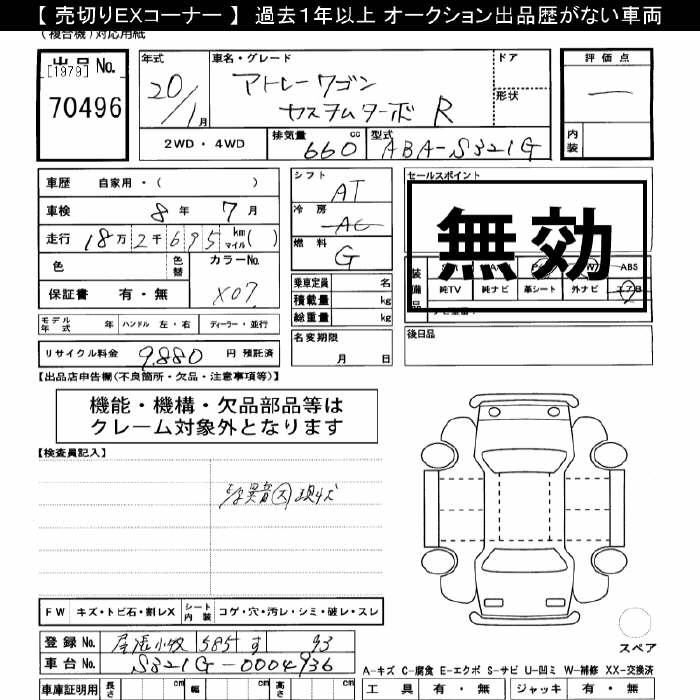 【 売切りEXコーナー 】 過去1年以上 オークション出品歴がない車両
(複合機)対応用紙
出品 No.
[1979]
70496
年式
20/1月
車名・グレード
アトレーワゴン
カスタムターボ R
ドア
形状
評価点
一
内装
2WD ・ 4WD
排気量 660 cc
型式 ABA-S321G
車歴 自家用・( )
車検 8年 7月
走行 18万 2千 695 km マイル ( )
色
色替
カラーNo. X07
保証書 有・無
シフト AT
冷房 AC
燃料 G
乗車定員 名
積載量 kg
総重量 kg
セールスポイント
無効
装備品
ABS
純TV 純ナビ 革シート 外ナビ エアB
モデル年式 年 ハンドル 左・右 ディーラー・並行
リサイクル料金 9,880 円 預託済
名変期限
月 日
後日品
【出品店申告欄(不良箇所・欠品・注意事項等)】
機能・機構・欠品部品等は
クレーム対象外となります
【検査員記入】
異音 大 現状
FW キズ・トビ石・割レX シート内装 コゲ・穴・汚レ・シミ・破レ・スレ
登録 No. 尾張小牧 585 す 93
車台 No. S321G-0004936
スペア
A-キズ C-腐食 E-エクボ S-サビ U-凹ミ W-補修 XX-交換済
車庫証明用 長さ cm 幅 cm 高さ cm
工具 有・無 ジャッキ 有・無